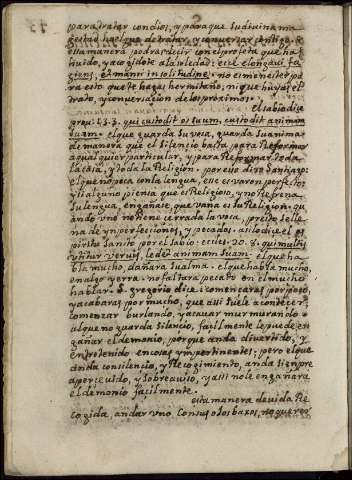 para tratar con dios, y para que su divina ma
gestad huelgue de tratar, y conversar contigo. de
esta manera podras decir con el profeta que has
huido, y acogidote a la soledad: ecce elongavi fu
giens, et mansi in solitudine. no es menester pa
ra esto que te hagas hermitaño, ni que huyas el
trato, y conversacion de los proximos.
el sabio dice
prou. 13. 3. qui custodit os suum, custodit animam
suam. el que guarda su voca, guarda su anima
de manera que el silencio basta para Reformar
a qualquier particular, y para Reformar toda
la casa, y toda la Religion. por eso dixo Santiago:
el que no peca con la lengua, ese es varon perfecto
y si alguno piensa que es Religioso, y no Refrena
su lengua, engañase, que vana es su Religion. qu
ando uno no tiene cerrada la voca, presto se lle
na de ynperfecciones, y pecados. asi lo dice el es
piritu Santo por el Sabio: eccles. 20. 8. qui multis
utitur verbis, ledet animam suam. el que ha
bla mucho dañara su alma. el que habla mucho,
en algo yerra: no faltara pecado en el mucho
hablar. S. gregorio dice: començaras por poco,
y acabaras por mucho, que asi suele acontecer,
comenzar burlando, y acavar murmurando:
al que no guarda silencio, facilmente le puede en
gañar el demonio, porque anda divertido, y
entretenido en cosas ympertinentes; pero el que
anda con silencio, y Recogimiento, anda sienpre
apercevido, y sobre aviso, y asi no le engañara
el demonio facilmente.
esta manera de vida Re
cogida, andar uno con sus ojos baxos, no querer